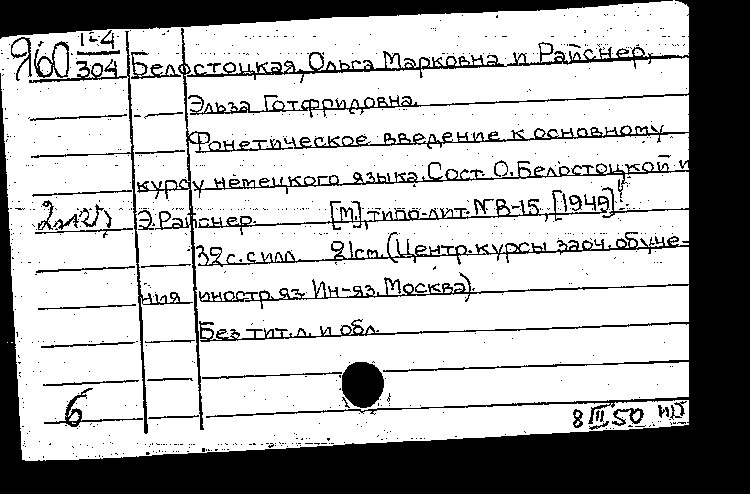 Я60 II-4
304
Белостоцкая, Ольга Марковна и Райснер,
Эльза Готфридовна.
Фонетическое введение к основному
курсу немецкого языка. Сост. О. Белостоцкой и
Э. Райснер. [М], типо-лит. № В-15, [1949]!
32 с. с илл. 21 см. (Центр. курсы заоч. обуче-
ния иностр. яз. Ин-яз. Москва).
Без тит. л. и обл.
6
8 III 50